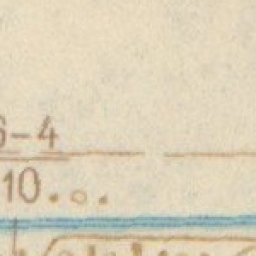 6-4
10...